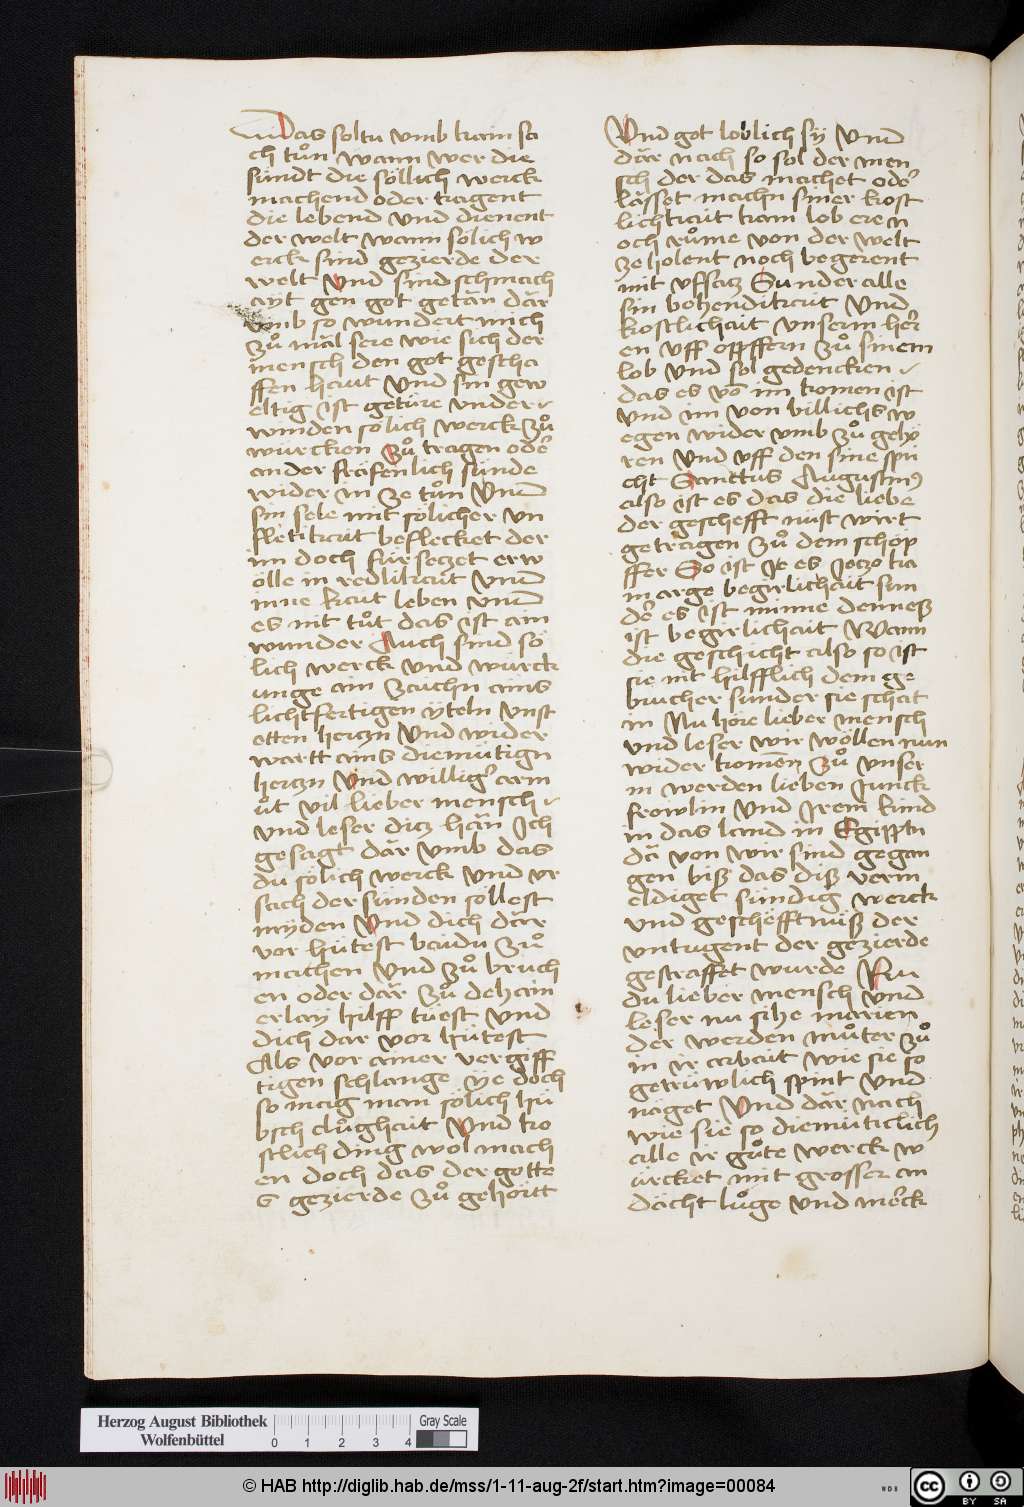 Das soltu vmb kain sa
ch tůn wann wer die
sündt die söllich werck
machend oder tragent
die lebend vnd dienent
der welt wann sölich w
erck sind gezierde der
welt Vnd sind schmach
ayt gen got getān dār
vmb so wundert mich
zů māl sere wie sich der
mensch den got gescha
ffen haut Vnd sin gew
eltig ist getüre vnder
winden sölich werck zů
würcken Zů tragen oder
ander fräfenlich sünde
wider in ze tůn Vnnd
sin sele mit sölicher vn
fletikait beflecket der
im doch für seczet erw
ölle in redlikait Vnnd
inne kait leben vnnd
es nit tůt das ist ain
wunder Auch sind sö
lich werck vnd würck
unge ain zaichn ains
lichtfertigen yteln vnst
etten herczn Vnd wider
wartt ains diemütign
herczn Vnd williger arm
ůt vil lieber mensch
vnd leser dicz hān Ich
gesagt dār vmb das
du sölich werck vnd vr
sach der sünden söllest
myden Vnd dich dār
vor hütest baidu zů
machen vnd zů bruch
en oder dār zů dehain
erlay hilff tüest vnd
dich dar vor hütest
Als vor ainer vergiff
tigen schlange ye doch
so mag man sölich hü
bsch clůghait Vnd ko
stlich ding wol mach
en doch das der gotte
s gezierde zů gehörtt
Vnd got loblich sÿ Vnnd
dār nach so sol der men
sch der das machet oder
lässet machn siner kost
lichkait kain lob ere n
och růme von der welt
ze holent noch begerent
mit vffsacz Sunder alle
sin behenditkait Vnd
kostlichait vnserm her
en vff opffern zů sinem
lob vnd sol gedencken
das es vō im komen ist
vnd im von billichs w
egen wider vmb zů gehö
ren vnd vff den sine spri
cht Sanctus Augustinus
also ist es das die liebe
der geschefft nüst wirt
getragen zů dem schöp
ffer So ist Je es Jeczo ka
in arge begirlichait sun
der es ist minne denneß
ist begirlichait Wann
die geschicht also so ist
sie nit hilfflich dem ge
brucher sunder sie schat
in Nu höre lieber mensch
vnd leser wir wöllen nun
wider komen zů vnser
in werden lieben Junck
frowlin vnd Jrem kind
in das land in Egiptn
dā von wir sind gegan
gen biß das diß verm
eldiget sündig werck
vnd geschefftnüß der
vntugent der gezierde
gestraffet wurde Nu
du lieber mensch vnd
leser nu sihe marien
der werden můter zů
in ir arbait wie sie so
getrüwlich spint vnd
näget Vnd dār nach
wie sie so diemüticlich
alle ir gůte werck w
ürcket mit grosser an
dächt lůge vnd merck
Herzog August Bibliothek
Wolfenbüttel
0 1 2 3 4
Gray Scale
© HAB http://diglib.hab.de/mss/1-11-aug-2f/start.htm?image=00084
WDB
CC BY SA